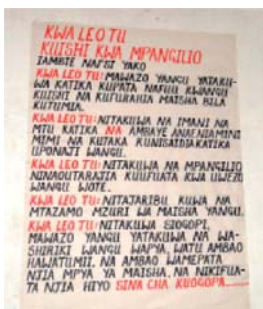 KWA LEO TU
KUISHI KWA MPANGILIO
IAMBIE NAFSI YAKO
KWA LEO TU: MAWAZO YANGU YATAKU-
WA KATIKA KUPATA NAFUU KWANGU
KUISHI NA KUFURAHIA MAISHA BILA
KUTUMIA.
KWA LEO TU: NITAKUWA NA IMANI NA
MTU KATIKA NA AMBAYE ANAENIAMINI
MIMI NA KUTAKA KUNISAIDIA KATIKA
UPONAJI WANGU.
KWA LEO TU: NITAKUWA NA MPANGILIO
NINAOUTARAJIA KUUFUATA KWA UWEZO
WANGU WOTE.
KWA LEO TU: NITAJARIBU KUWA NA
MTAZAMO MZURI WA MAISHA YANGU.
KWA LEO TU: NITAKUWA SIOGOPI,
MAWAZO YANGU YATAKUWA NA WA-
SHIRIKI WANGU WAPYA, WATU AMBAO
HAWATUMII, NA AMBAO WAMEPATA
NJIA MPYA YA MAISHA, NA NIKIFUA-
TA NJIA HIYO SINA CHA KUOGOPA........